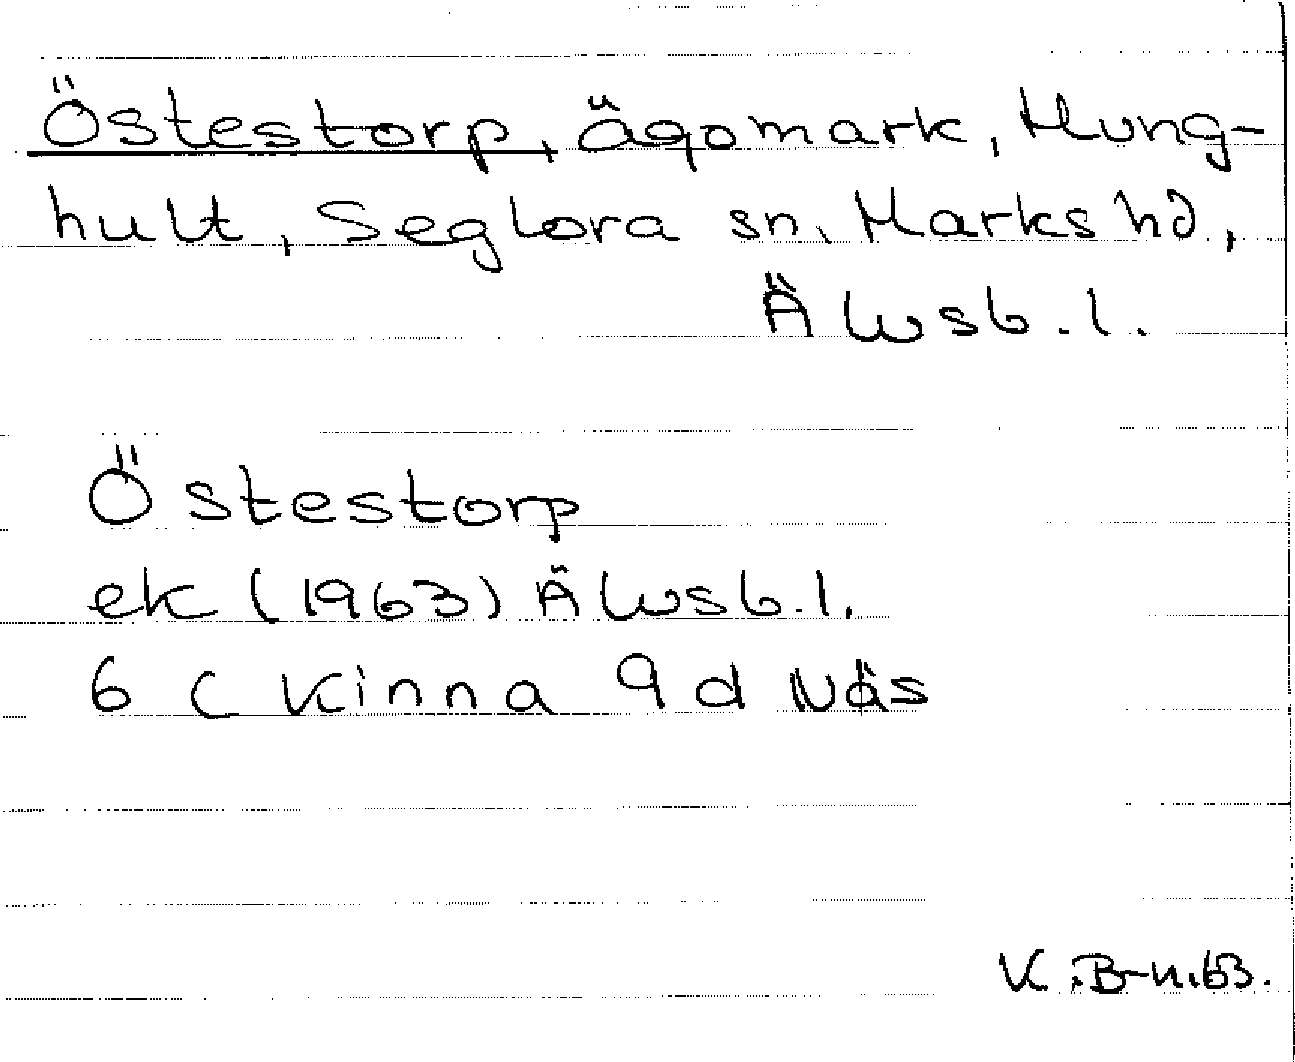 Östestorp, ägomark, Hung-
hult, Seglora sn, Marks hd,
Älvsb. l.
Östestorp
ek (1963) Älvsb. l.
6 C Kinna 9 d Näs
K. B-n. 63.